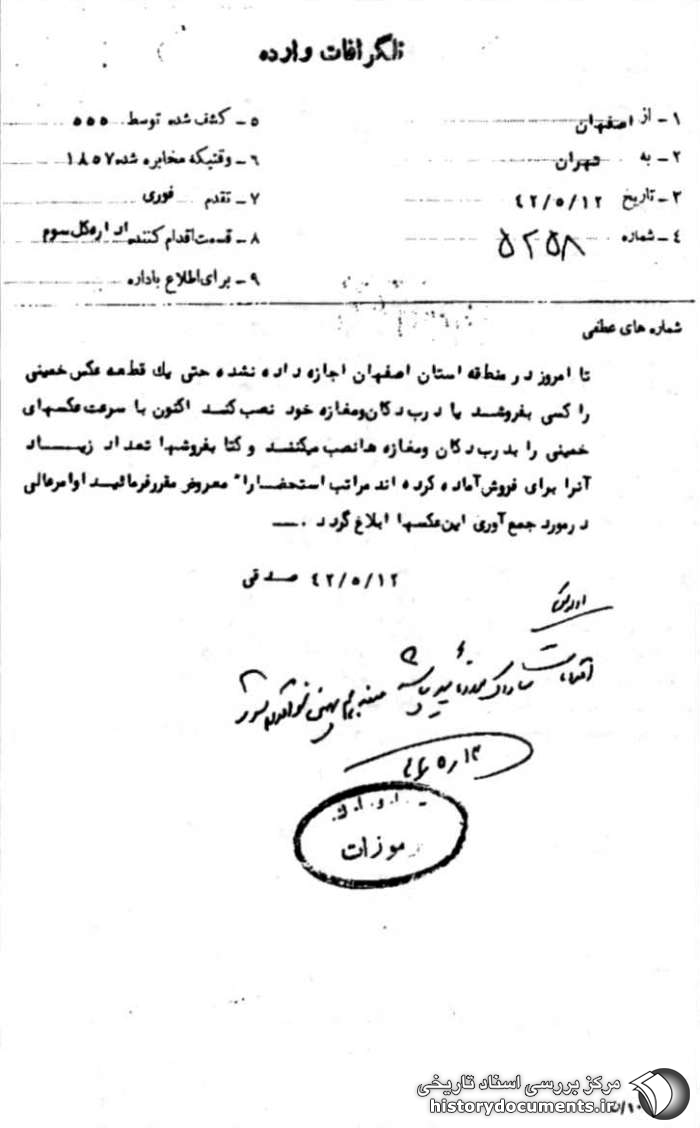 تلگرافات وارده
۱ـ از اصفهان
۲ـ به تهران
۳ـ تاریخ ۴۲/۵/۱۲
۴ـ شماره ۵۲۵۸
۵ـ کشف شده توسط ۵۵۵
۶ـ وقتیکه مخابره شده ۱۸۵۷
۷ـ تقدم فوری
۸ـ قسمت اقدام کننده اداره کل سوم
۹ـ برای اطلاع باداره
شماره های عطفی
تا امروز در منطقه استان اصفهان اجازه داده نشده حتی یک قطعه عکس خمینی
را کسی بفروشد یا درب دکان ومغازه خود نصب کند اکنون با سرعت عکسهای
خمینی را بدرب دکان ومغازه ها نصب میکنند و کتابفروشها تعداد زیــاد
آنرا برای فروش آماده کرده اند مراتب استحضاراً معروض مقرر فرمائید اوامر عالی
درمورد جمع آوری این عکسها ابلاغ گردد .ــ
۴۲/۵/۱۲ صدقی
اقدامات ساواک
۱۳/۵/۴۲
رموزات
مرکز بررسی اسناد تاریخی
historydocuments.ir